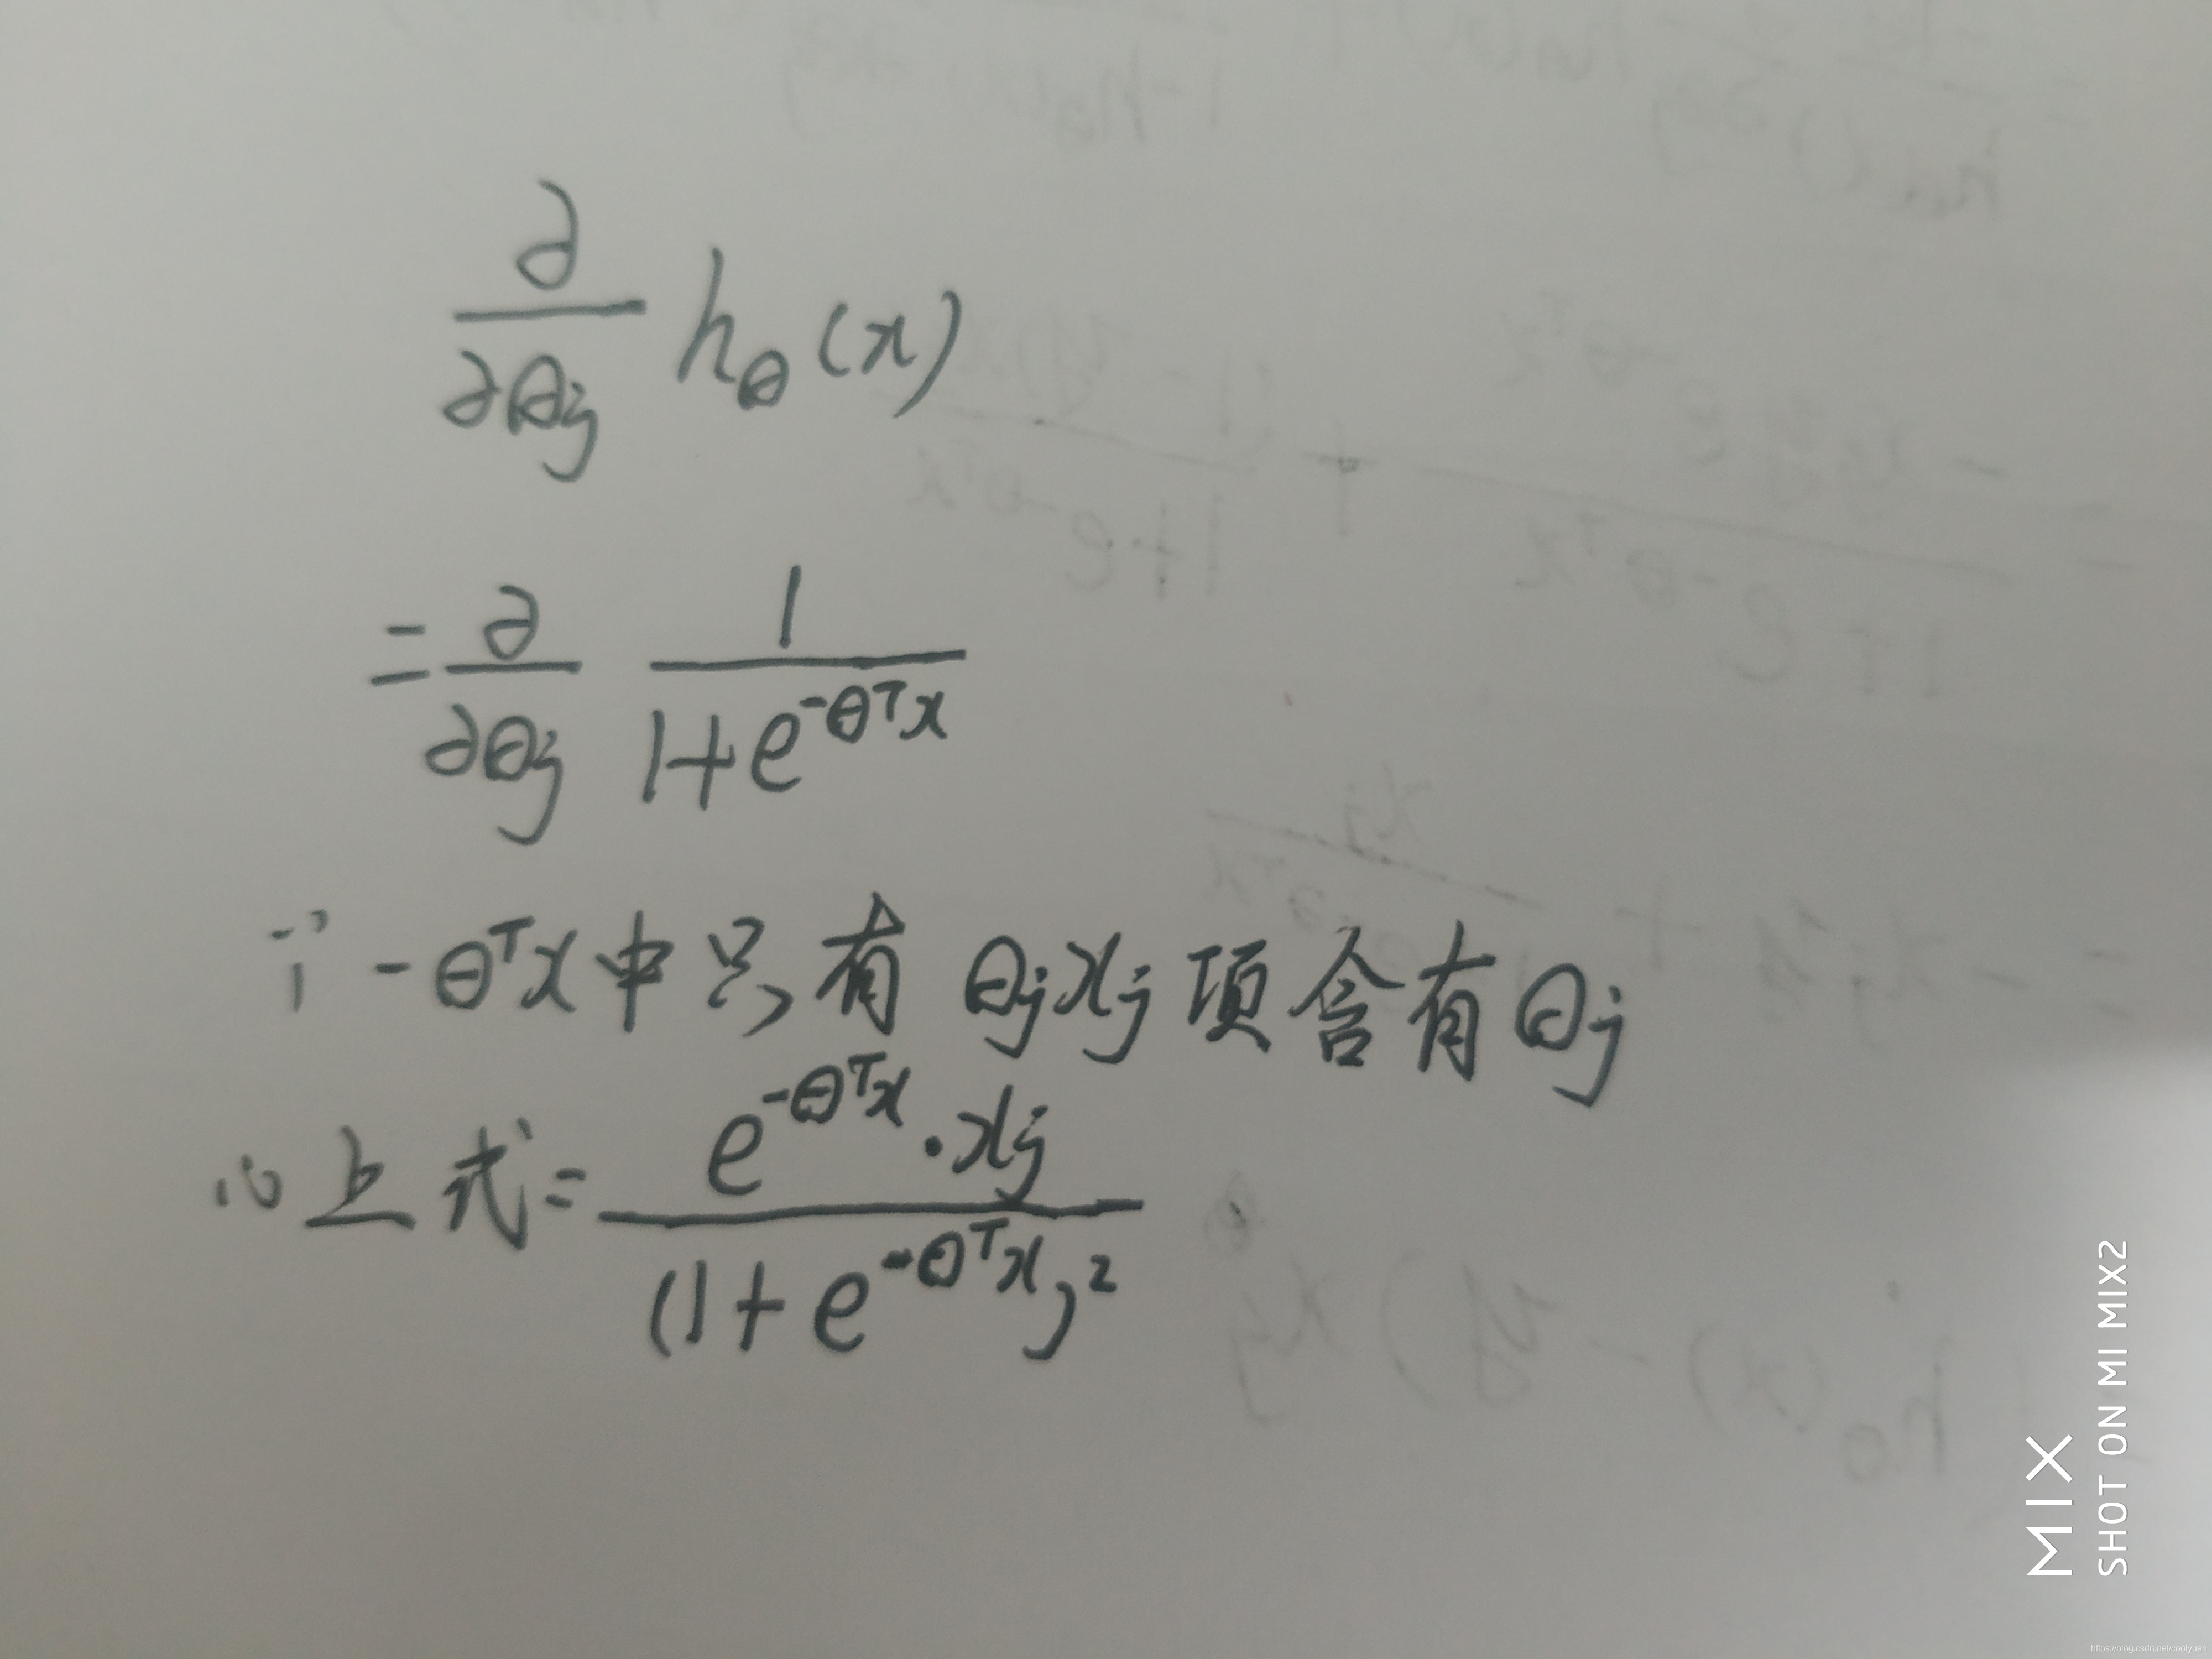 ∂/∂θj hθ(x)
= ∂/∂θj 1/(1+e^(-θ^T x))
∵ -θ^T x中只有 θjxj 项含有θj
∴上式= e^(-θ^T x)·xj/(1+e^(-θ^T x))²
MIX
SHOT ON MI MIX2
https://blog.csdn.net/coolyuan